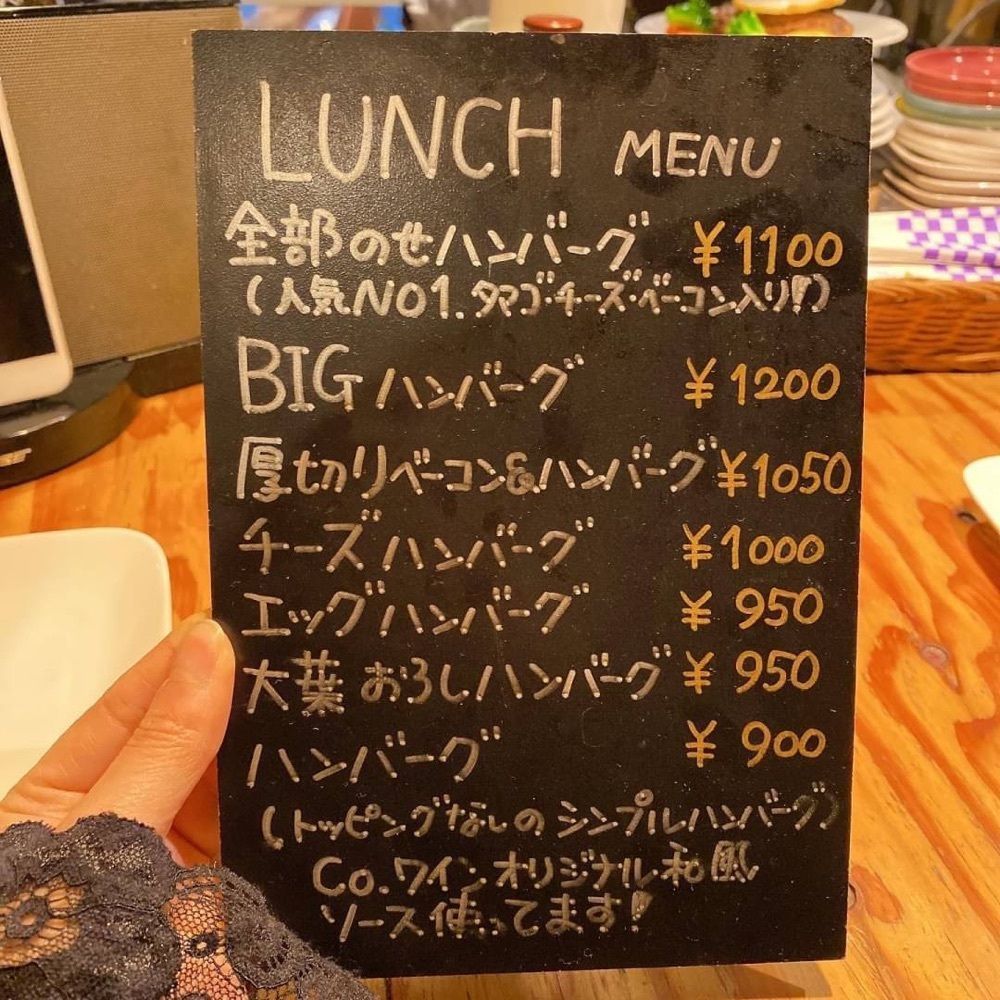 LUNCH MENU
全部のせハンバーグ ¥1100
(人気NO1.タマゴ・チーズ・ベーコン入り!!)
BIG ハンバーグ ¥1200
厚切りベーコン&ハンバーグ ¥1050
チーズハンバーグ ¥1000
エッグハンバーグ ¥950
大葉おろしハンバーグ ¥950
ハンバーグ ¥900
(トッピングなしのシンプルハンバーグ)
Co.ワインオリジナル和風
ソース使ってます!